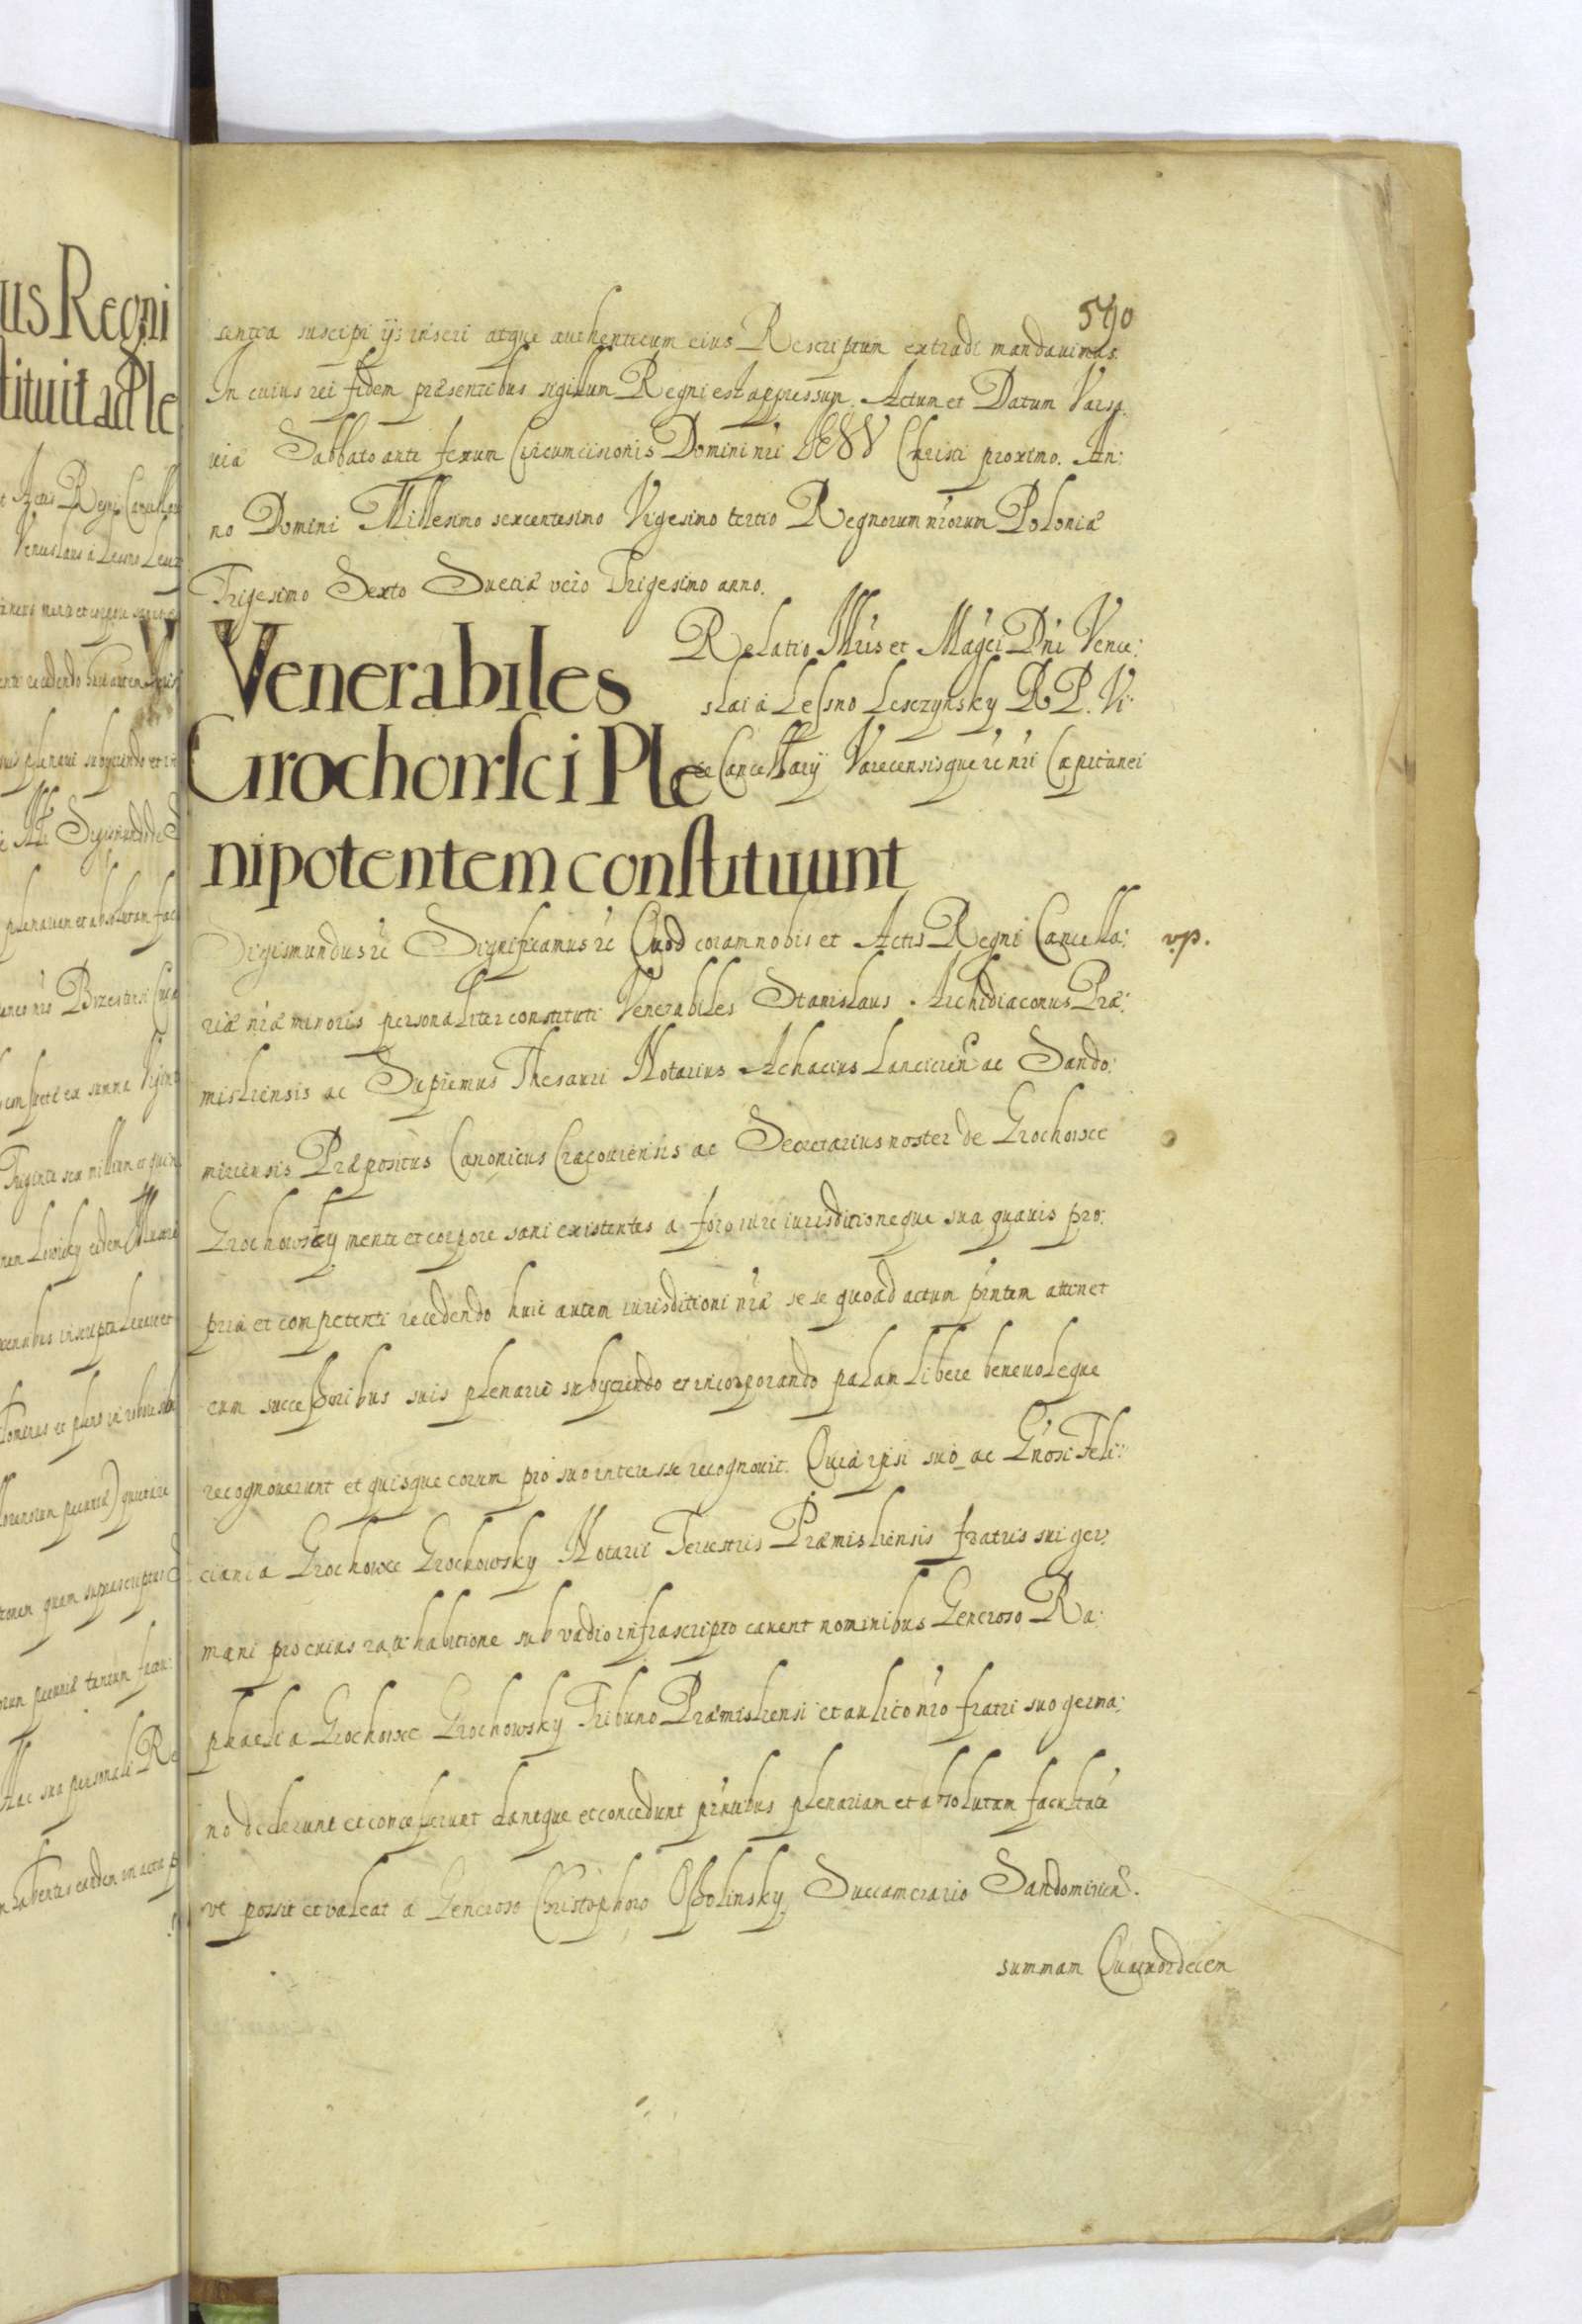 590
sentia suscipi ijs inseri atque authenticum eius Rescriptum extradi mandauimus.
In cuius rei fidem præsentibus sigillum Regni est appressum. Actum et Datum Varsa:
uiæ Sabbato ante festum Circumcisionis Domini nri IESV Christi proximo. An:
no Domini Millesimo sexcentesimo Vigesimo tertio Regnorum nrorum Poloniæ
Trigesimo Sexto Sueciæ vero Trigesimo anno.
Relatio Illris et Magci Dni Vence:
slai a Lessno Lesczynsky R P. Vi:
ce Cancellarij Varecensisque rc nri Capitanei
Venerabiles
Grochowsci Ple
nipotentem constituunt
Sigismundus rc Significamus rc Quod coram nobis et Actis Regni Cancella:
vp.
riæ nræ minoris personaliter constituti Venerabiles Stanislaus Archidiaconus Præ:
misliensis ac Supremus Thesauri Notarius Achacius Lancicien ac Sando:
miriensis Præpositus Canonicus Cracouiensis ac Secretarius noster de Grochowce
Grochowsky mente et corpore sani existentes a foro iure iurisditioneque sua quauis pro:
pria et competenti recedendo huic autem iurisditioni nræ se se quoad actum pntem attinet
cum successoribus suis plenarie subyciendo et incorporando palam libere beneuoleque
recognouerunt et quisque eorum pro suo interesse recognouit. Quia ipsi suo ac Gnosi Feli:
ciani a Grochowce Grochowsky Notarii Terrestris Præmisliensis fratris sui ger:
mani pro cuius rati habitione sub vadio infrascripto cauent nominibus Generoso Ra:
phaeli a Grochowce Grochowsky Tribuno Præmisliensi et aulico nro fratri suo germa:
no dederunt et concesserunt dantque et concedunt pntibus plenariam et absolutam facultate
vt possit et valeat a Generoso Christophoro Ossolinsky Succamerario Sandomirien.
summam Quatuordecem